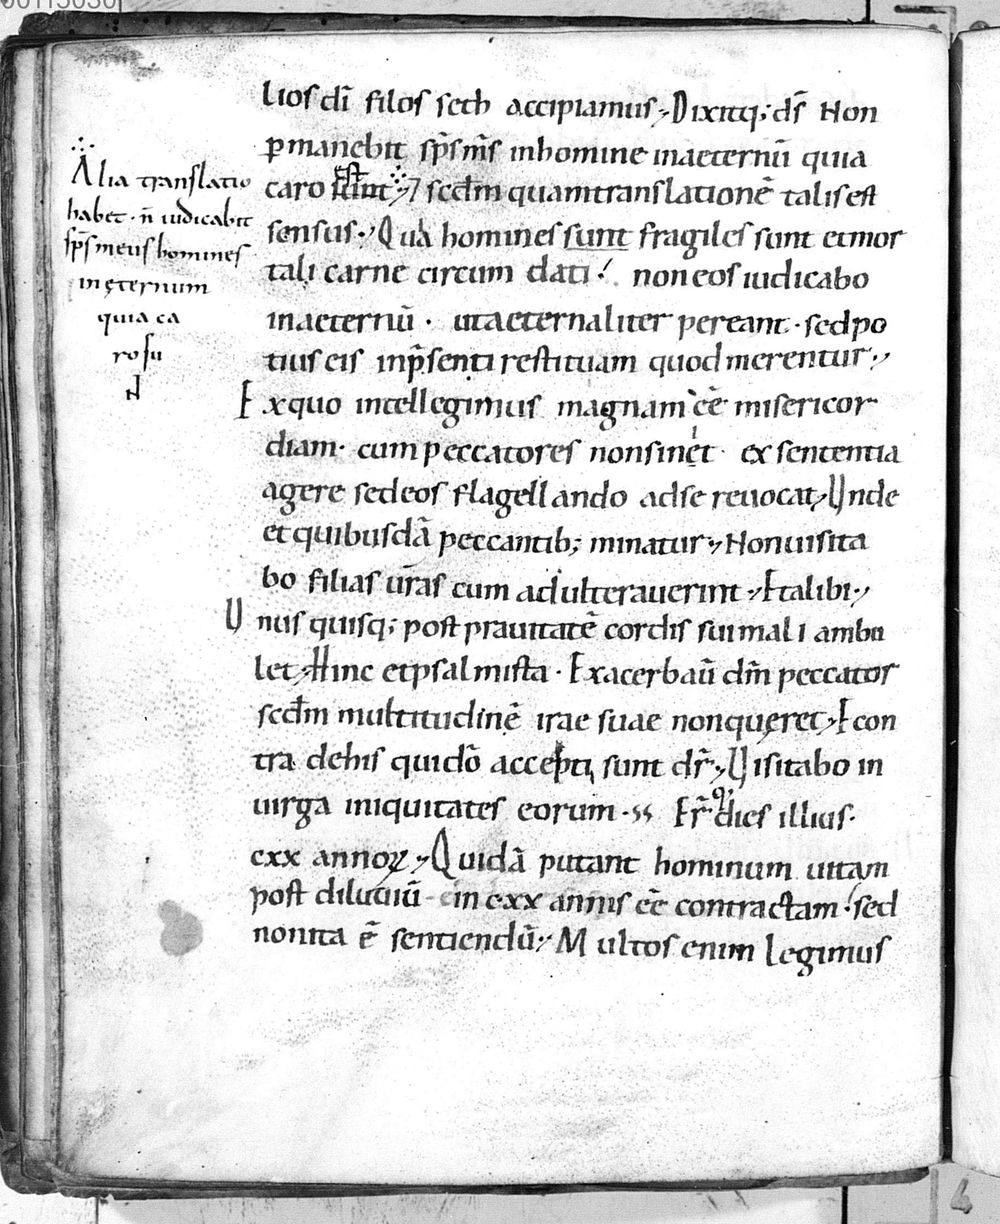 lios dī filos seth accipiamus. Dixitq; d̄s Non
ꝑmanebit sp̄s m̄s inhomine inaeternū quia
caro sunt est ⁊ scd̄m quamtranslationē talisest
sensus. Quia homines sunt fragiles sunt etmor
tali carne circum dati. noneos iudicabo
inaeternū. utaeternaliter pereant. sedpo
tius eis inp̄senti restituam quodmerentur.
Exquo intellegimus magnam ēē misericor
diam. cumpeccatores nonsinit ex sententia
agere sedeos flagellando adse reuocat. Unde
etquibusdā peccantib; minatur. Nonuisita
bo filias ur̄as cum adulterauerint. Etalibi.
Unus quisq; post prauitatē cordis suimali ambu
let. Hinc etpsalmista. Exacerbauit dn̄m peccator
scd̄m multitudinē irae suae nonquęret. Econ
tra dehis quidō accepti sunt dr̄. Visitabo in
uirga iniquitates eorum. Er̄ dies illius.
cxx annoꝝ. Quidā putant hominum uitam
post diluuiū in cxx annis ēē contractam. sed
nonita ē sentiendū. Multos enim legimus
Alia translatio
habet. n̄ iudicabit
sp̄s meus homines
inęternum
quia ca
ro su
nt
4